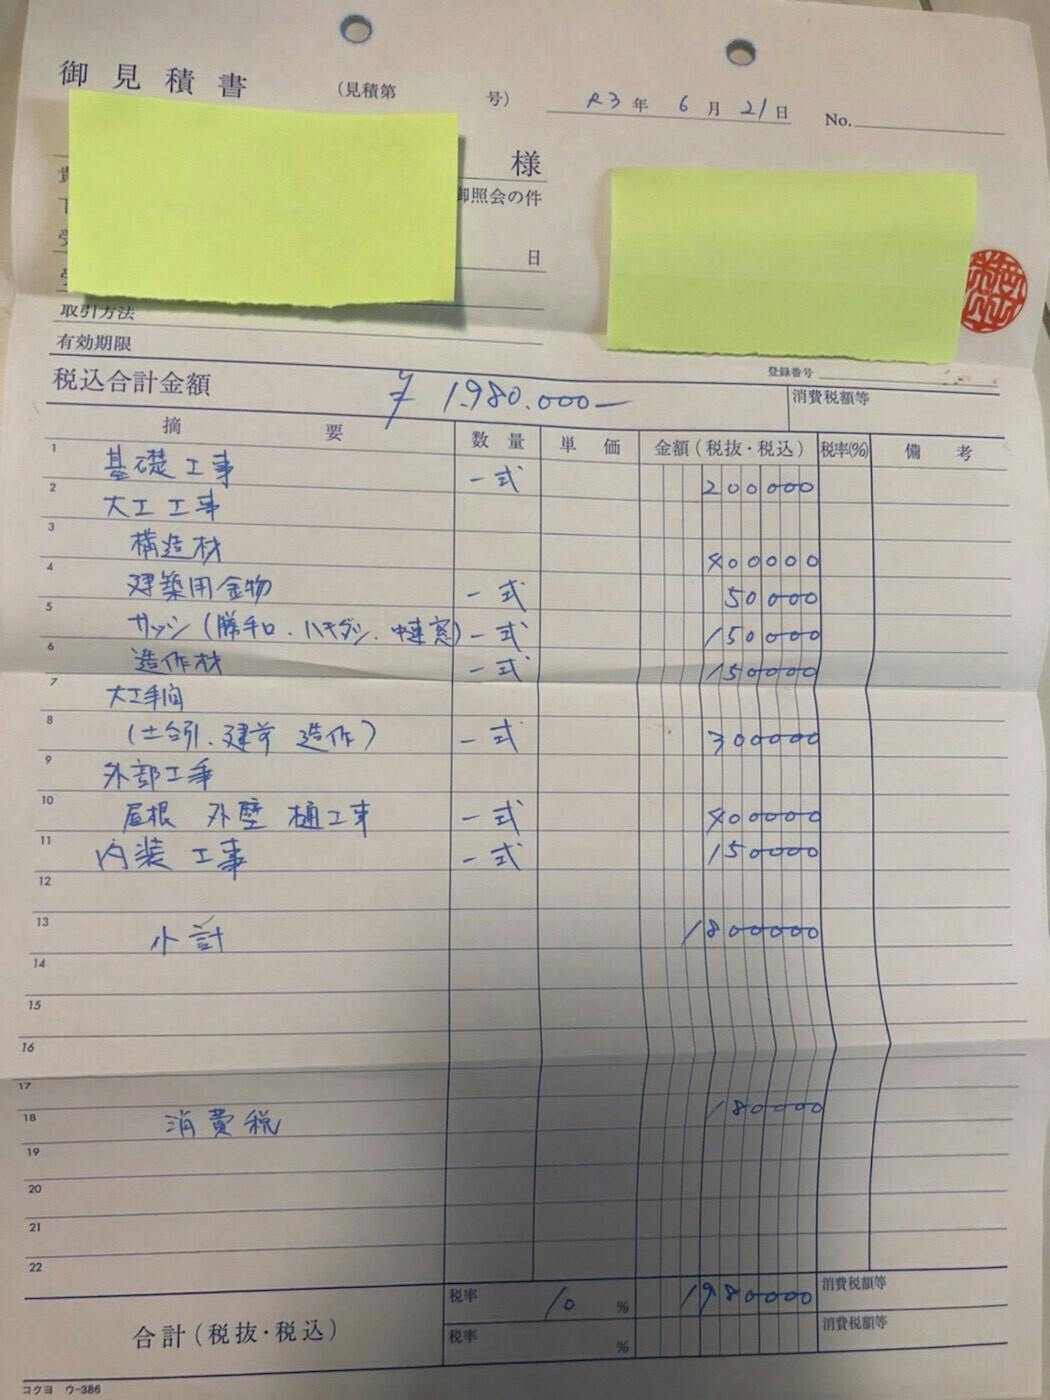 御見積書 (見積第 号) R3年 6月 21日 No.
様
御照会の件
日
取引方法
有効期限
登録番号
税込合計金額 ¥1,980,000― 消費税額等
摘 要 数量 単価 金額(税抜・税込) 税率(%) 備考
1 基礎工事 一式 200000
2 大工工事
3 構造材 400000
4 建築用金物 一式 50000
5 サッシ(勝手口.ハキダシ.中連窓) 一式 150000
6 造作材 一式 150000
7 大工手間
8 (土台引.建前 造作) 一式 300000
9 外部工事
10 屋根 外壁 樋工事 一式 400000
11 内装工事 一式 150000
12
13 小計 1800000
14
15
16
17
18 消費税 180000
19
20
21
22
合計(税抜・税込) 税率 10 % 1980000 消費税額等
税率 % 消費税額等
コクヨ ウ-386